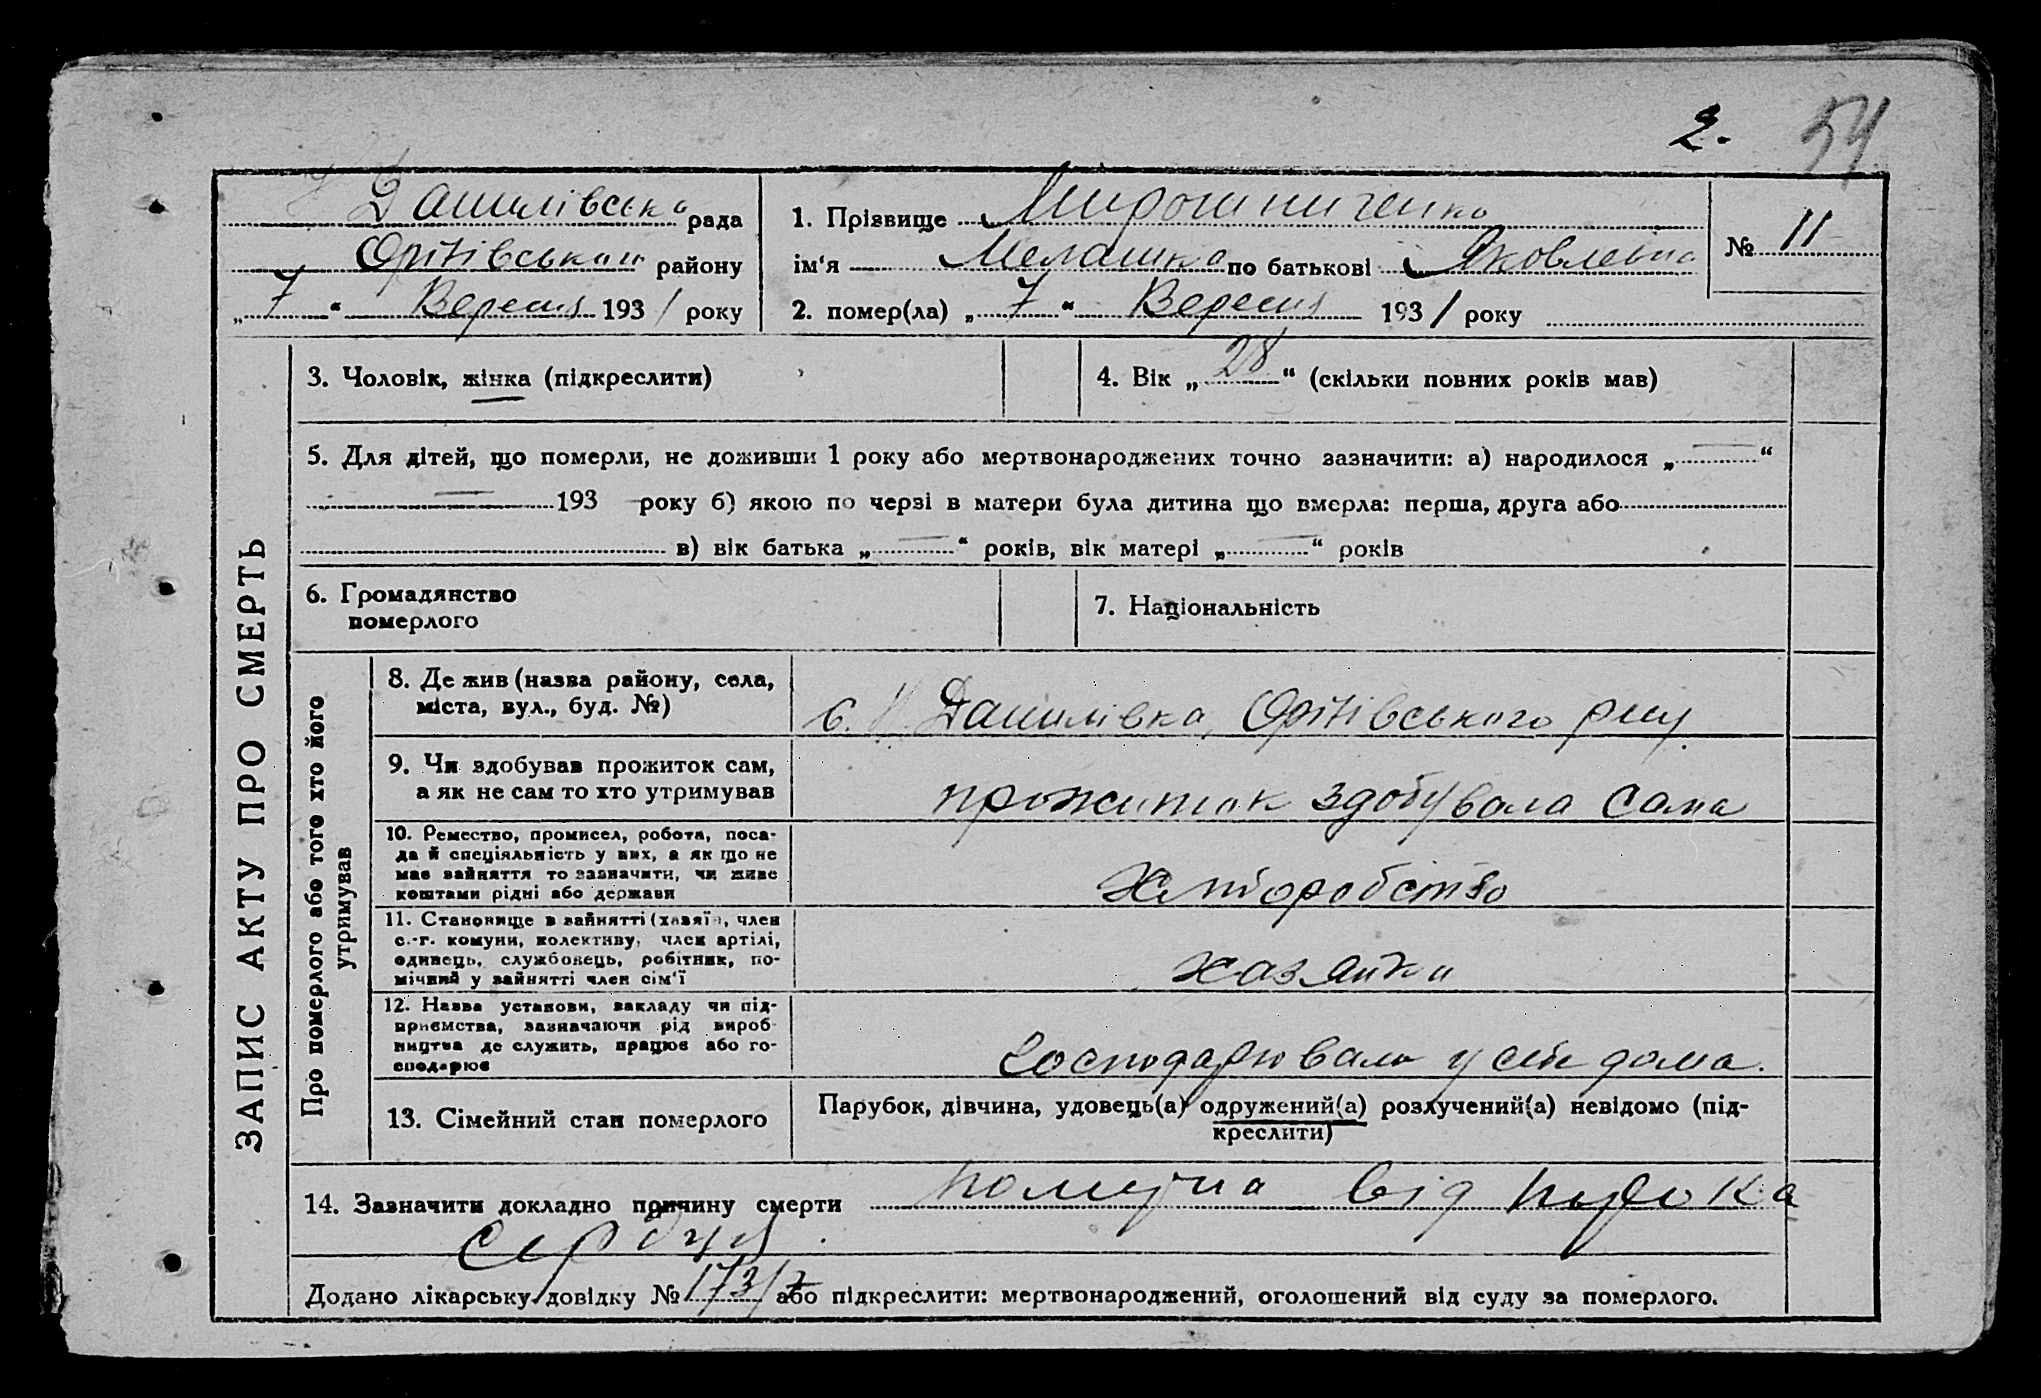 2. 54
Н Данилівська рада
Оріхівського району
„ 7 “ Вересня 193 1 року
1. Прізвище Мирошниченко
№ 11
ім'я Мелашка по батькові Яковлевна
2. помер(ла) „ 7 “ Вересня 193 1 року
ЗАПИС АКТУ ПРО СМЕРТЬ
3. Чоловік, жінка (підкреслити)
4. Вік „ 28 “ (скільки повних років мав)
5. Для дітей, що померли, не доживши 1 року або мертвонароджених точно зазначити: а) народилося „ — “
— 193 — року б) якою по черзі в матери була дитина що вмерла: перша, друга або
в) вік батька „ — “ років, вік матері „ — “ років
6. Громадянство
померлого
7. Національність
Про померлого або того хто його
утримував
8. Де жив (назва району, села,
міста, вул., буд. №)
с. Н Данилівка, Оріхівського р-ну
9. Чи здобував прожиток сам,
а як не сам то хто утримував
прожиток здобувала сама
10. Ремество, промисел, робота, поса-
да й спеціяльність у них, а як що не
має зайняття то зазначити, чи живе
коштами рідні або держави
хліборобство
11. Становище в зайнятті (хазяїн, член
с.-г. комуни, колективу, член артілі,
одинець, службовець, робітник, по-
мічний у зайнятті член сім'ї
хазяйка
12. Назва установи, закладу чи під-
приємства, зазначаючи рід вироб-
ництва де служить, працює або го-
сподарює
господарювала у себе дома.
13. Сімейний стан померлого
Парубок, дівчина, удовець(а) одружений(а) розлучений(а) невідомо (під-
креслити)
14. Зазначити докладно причину смерти померла від порока
сердця.
Додано лікарську довідку № 173/7 або підкреслити: мертвонароджений, оголошений від суду за померлого.